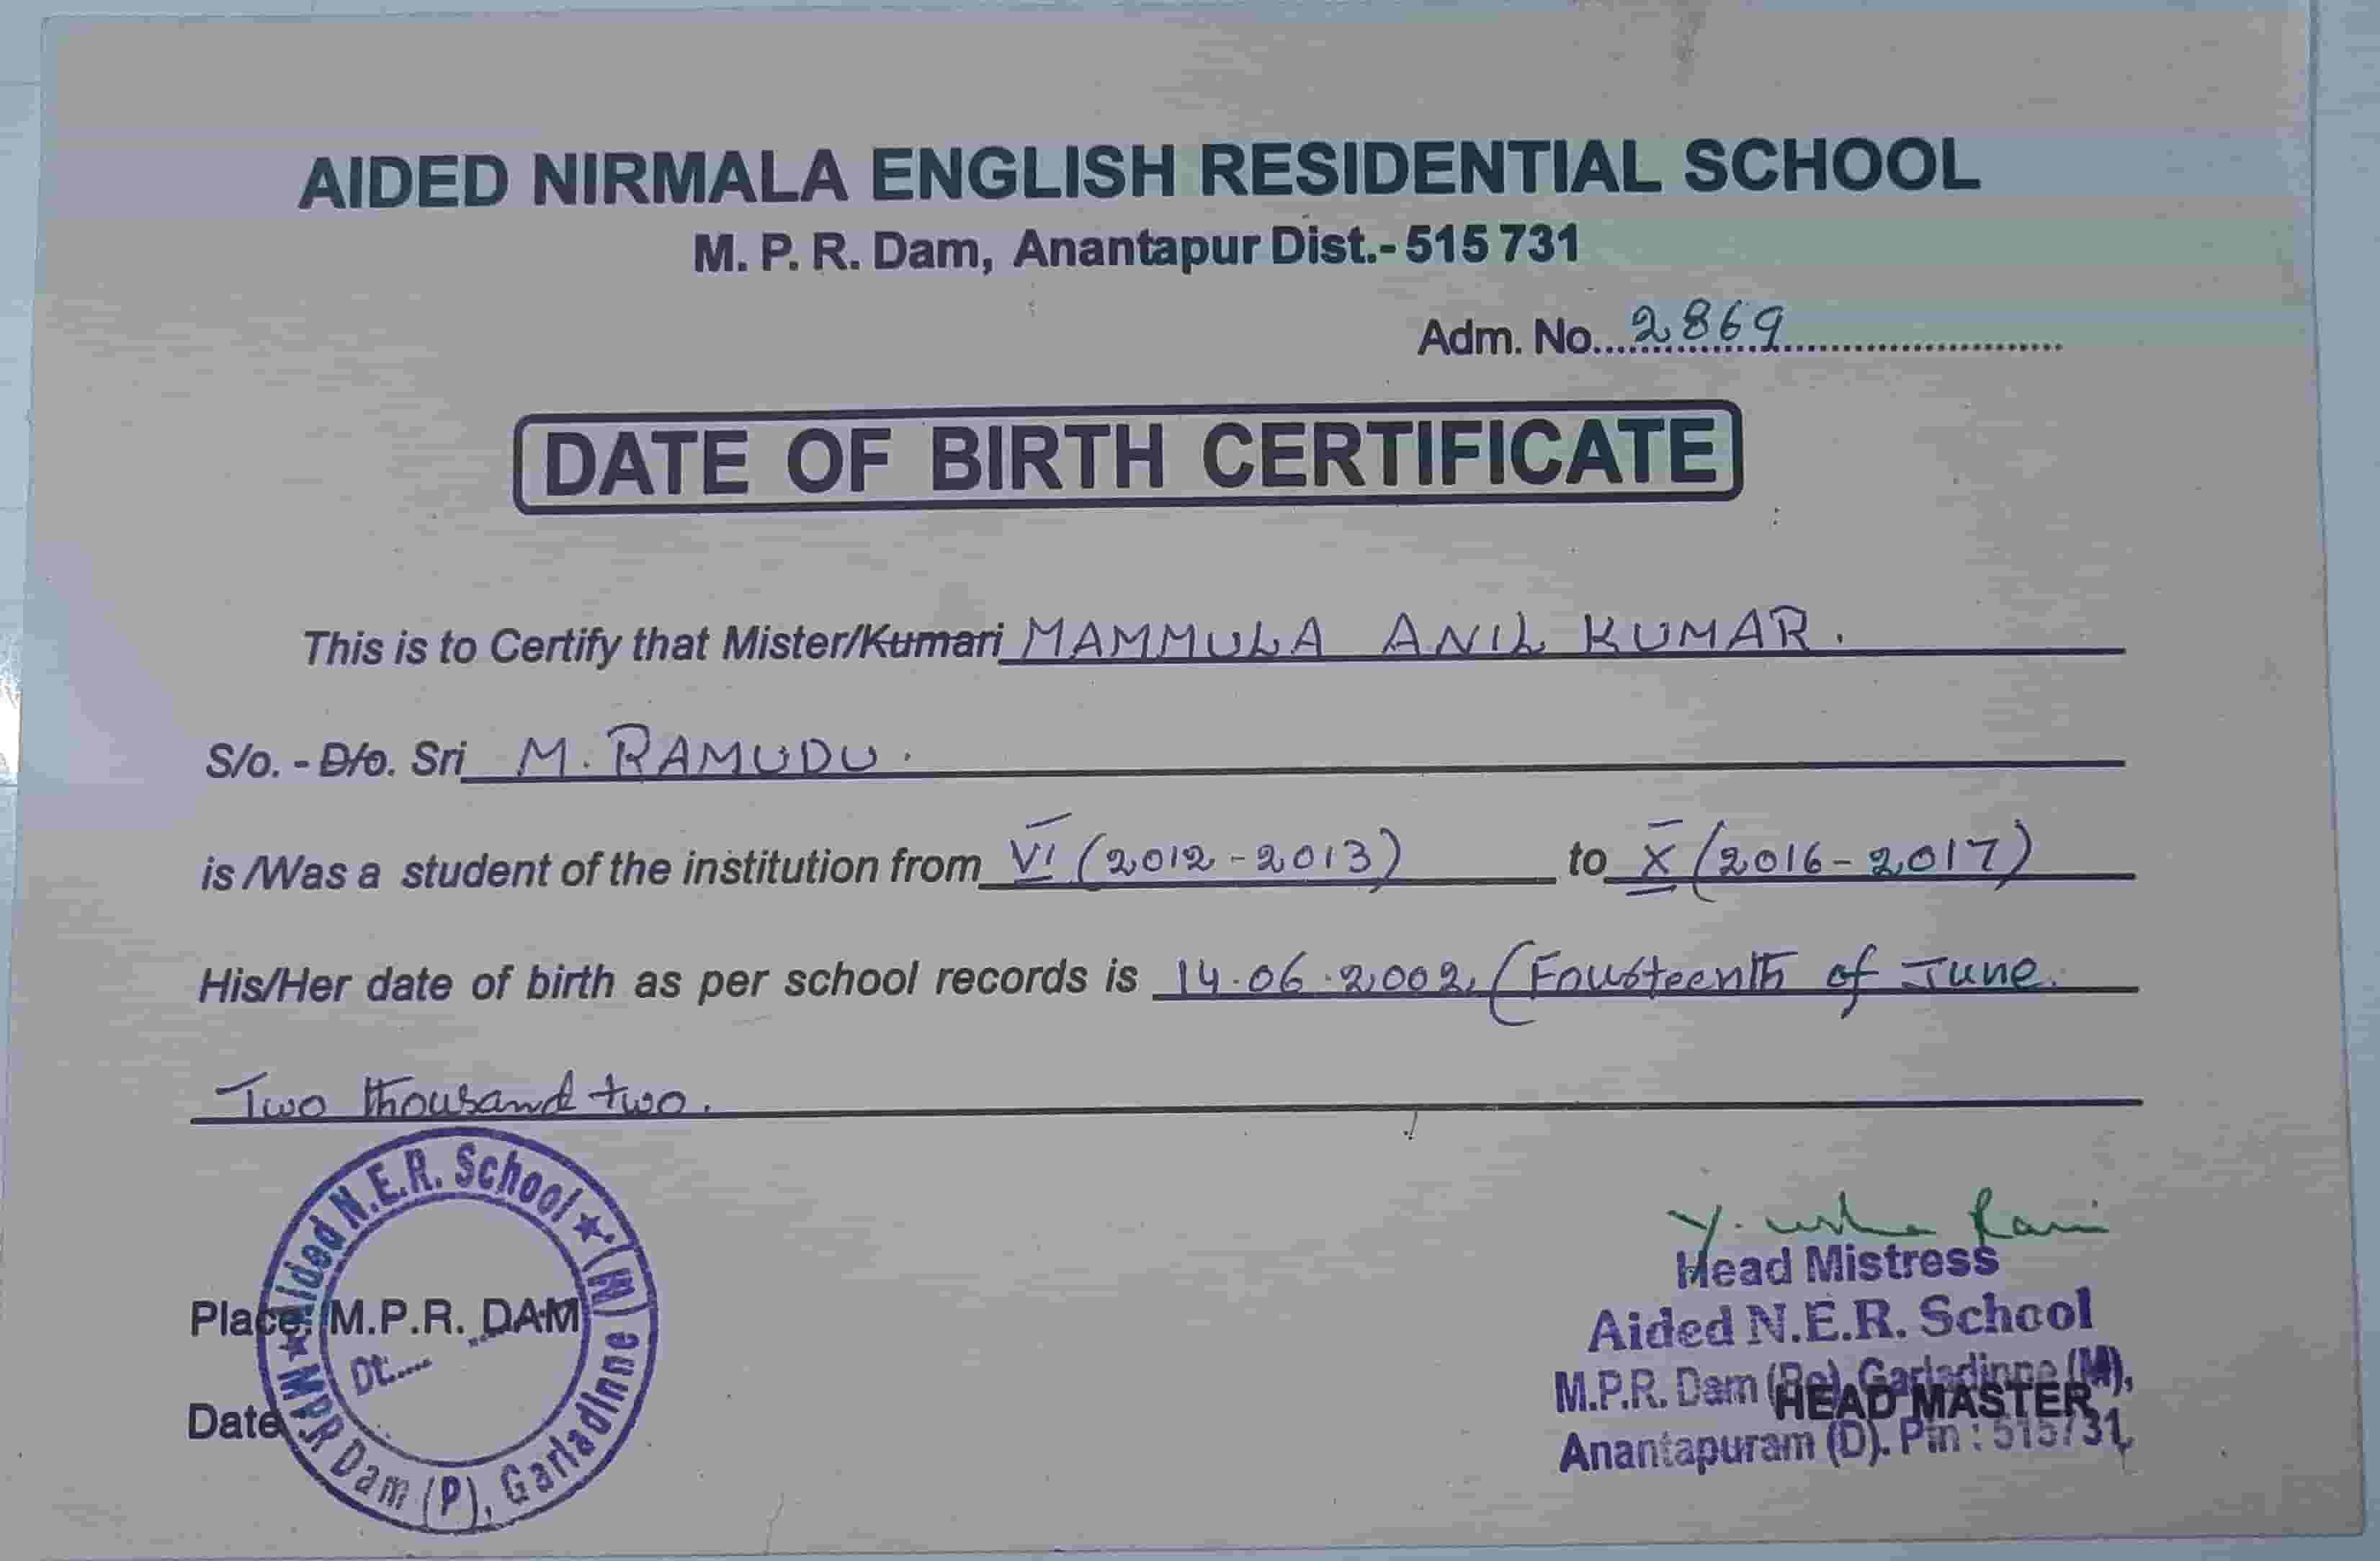 AIDED NIRMALA ENGLISH RESIDENTIAL SCHOOL
M. P. R. Dam, Anantapur Dist.- 515 731
Adm. No....2869....
DATE OF BIRTH CERTIFICATE
This is to Certify that Mister/Kumari MAMMULA ANIL KUMAR.
S/o. - D/o. Sri M. RAMUDU.
is /Was a student of the institution from VI (2012-2013) to X (2016-2017)
His/Her date of birth as per school records is 14.06.2002. (Fourteenth of June
Two thousand two.
Aided N.E.R. School ★ (M)
★ MPR Dam (P), Garladinne
Place: M.P.R. DAM
Dt:....
Date
Y. Usha Rani
Head Mistress
Aided N.E.R. School
M.P.R. Dam (Po), Garladinne (M),
HEAD MASTER
Anantapuram (D). Pin : 515731,